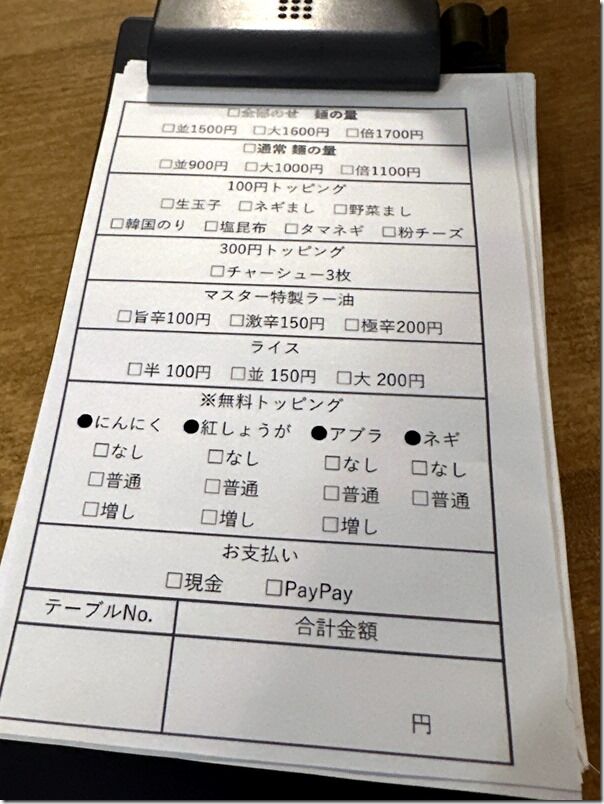 □全部のせ 麺の量
□並1500円 □大1600円 □倍1700円
□通常 麺の量
□並900円 □大1000円 □倍1100円
100円トッピング
□生玉子 □ネギまし □野菜まし
□韓国のり □塩昆布 □タマネギ □粉チーズ
300円トッピング
□チャーシュー3枚
マスター特製ラー油
□旨辛100円 □激辛150円 □極辛200円
ライス
□半 100円 □並 150円 □大 200円
※無料トッピング
●にんにく ●紅しょうが ●アブラ ●ネギ
□なし □なし □なし □なし
□普通 □普通 □普通 □普通
□増し □増し □増し
お支払い
□現金 □PayPay
テーブルNo. 合計金額
円